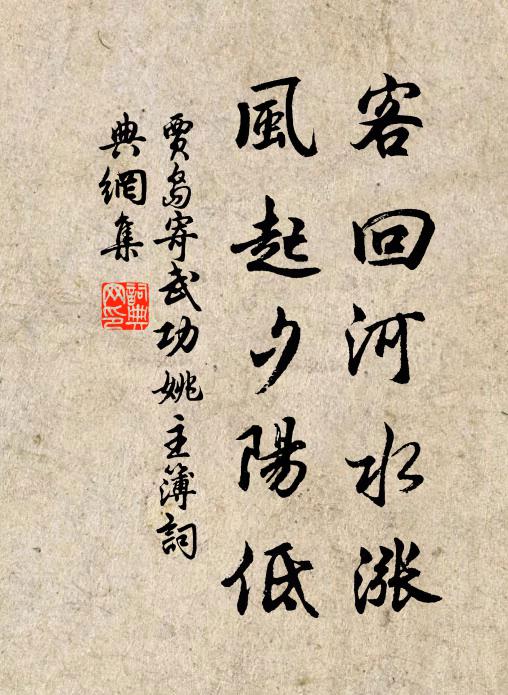 客回河水漲
風起夕陽低
賈島寄武功姚主簿詞
典網集
詞典網印